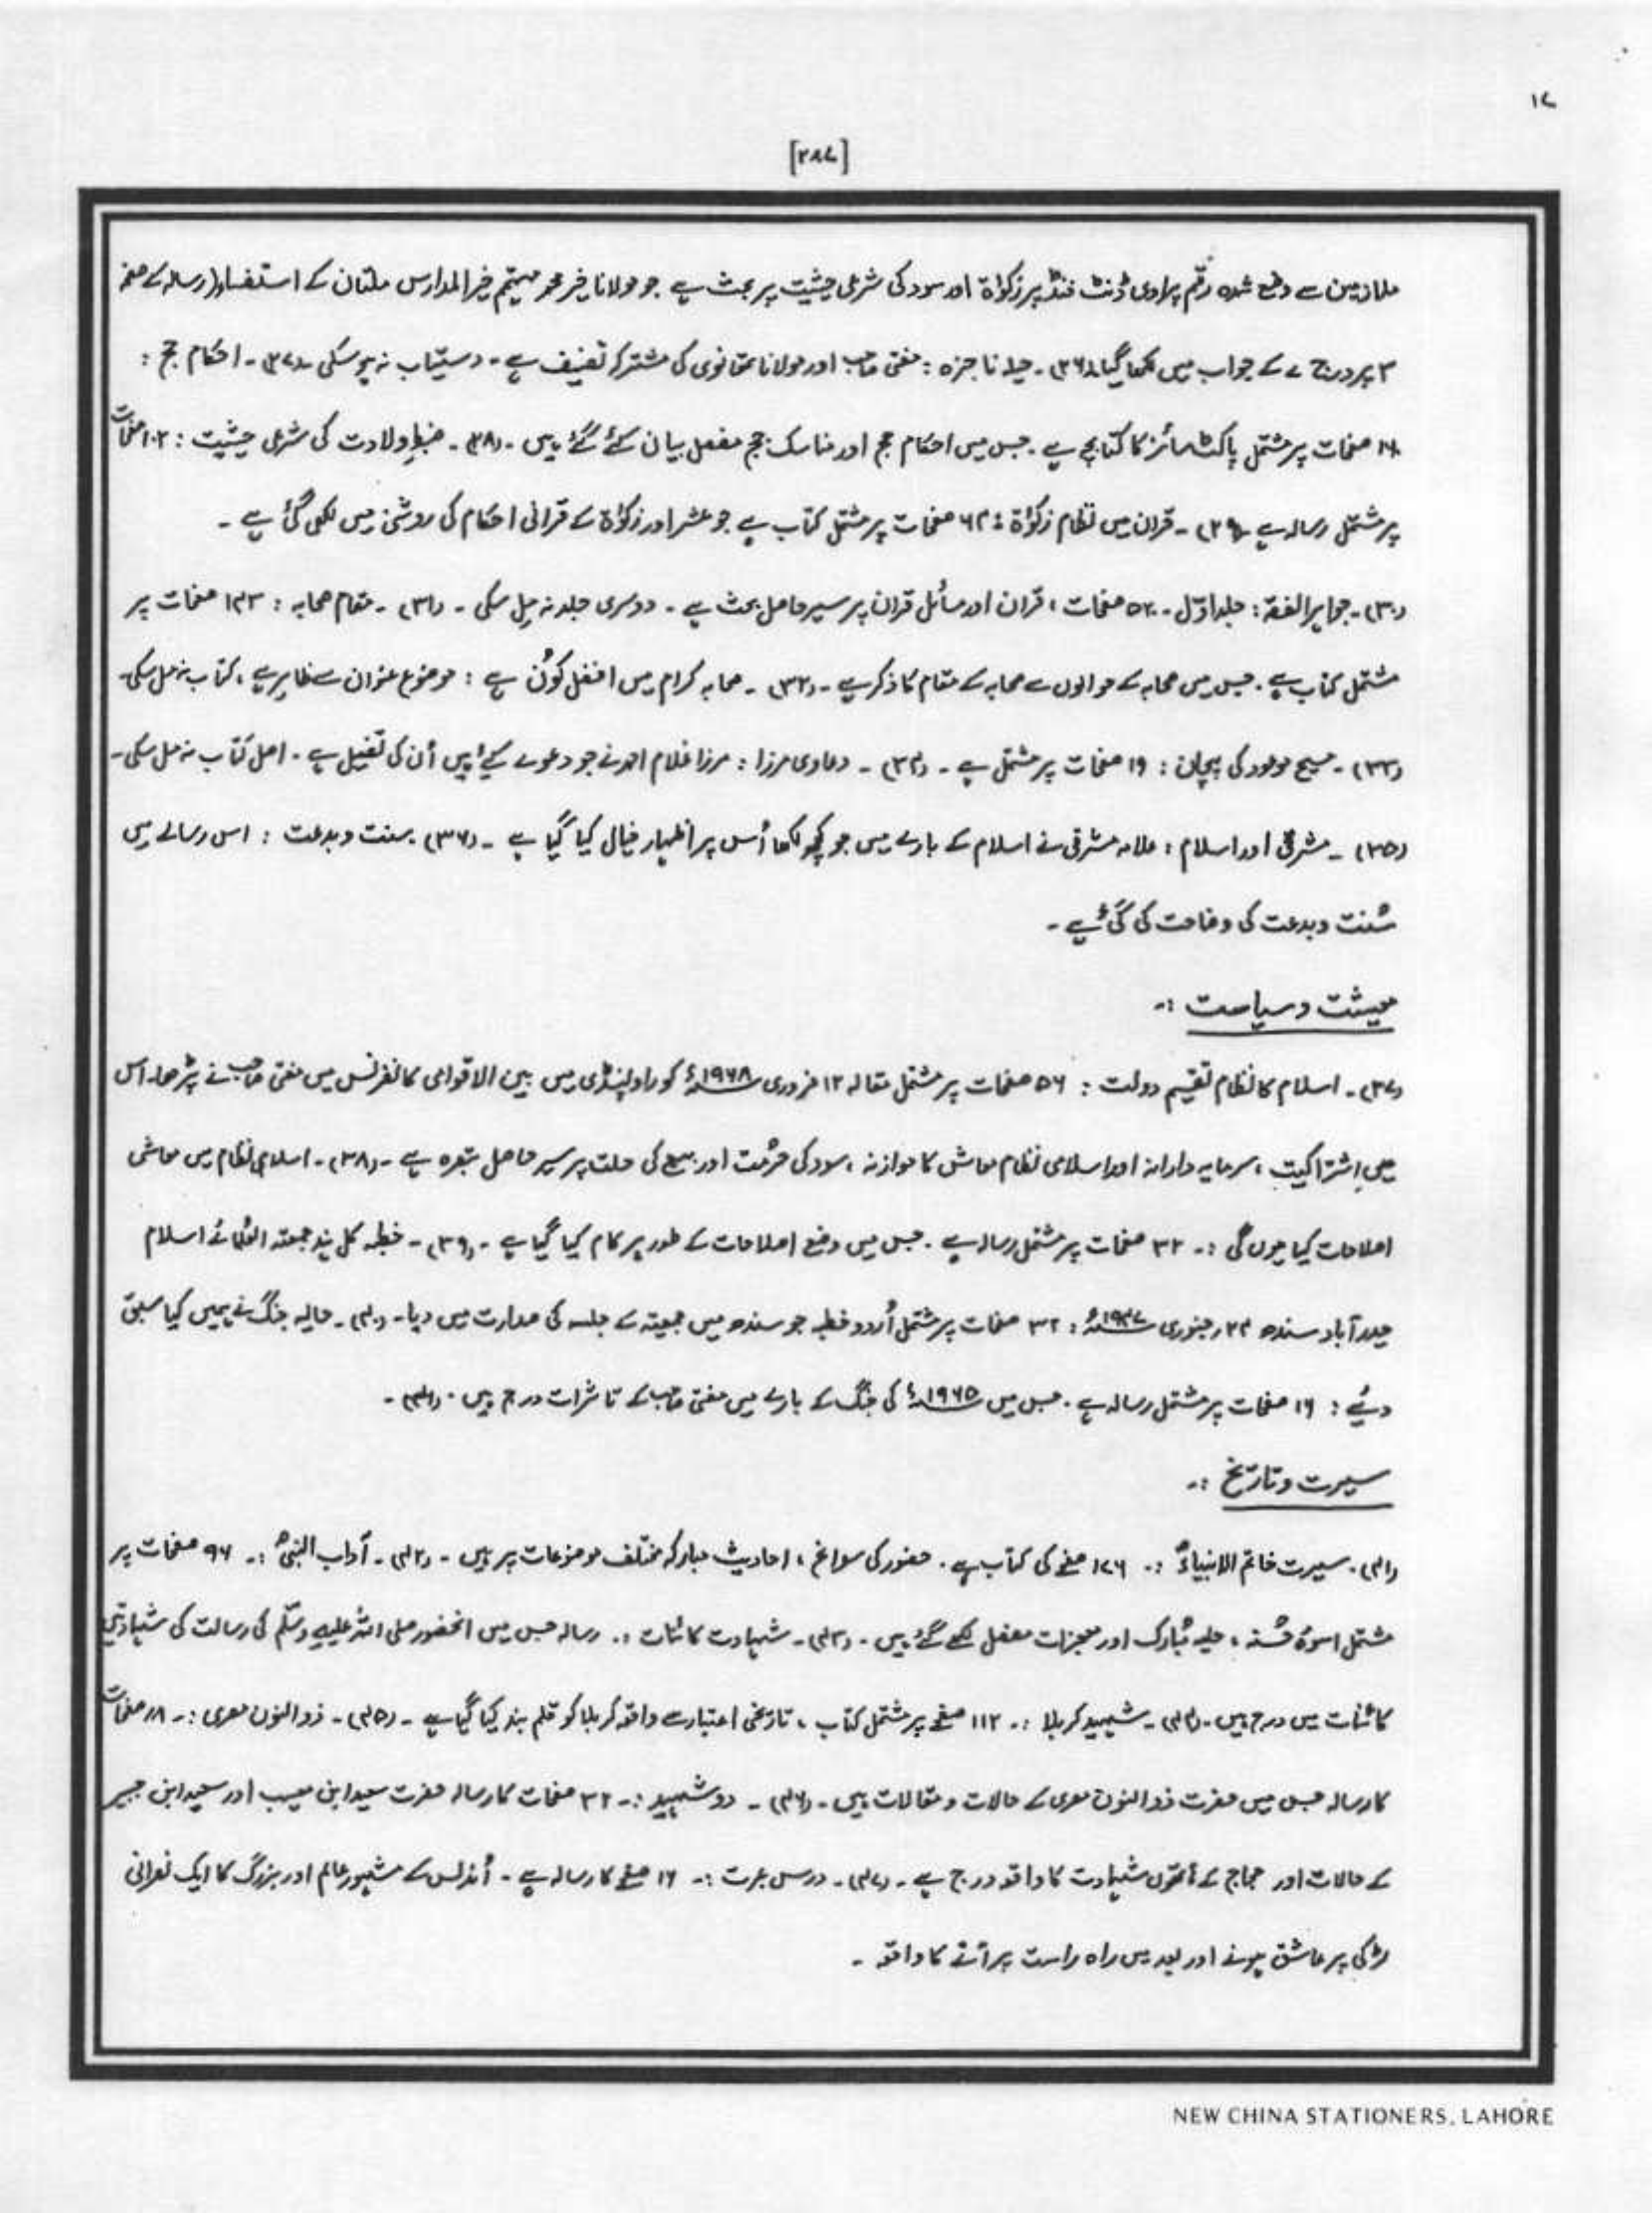 ۱۷
[۲۸۷]
ملازمین سے وضع شدہ رقم پراویڈنٹ فنڈ پر زکواۃ اور سود کی شرعی حیثیت پر بحث ہے جو مولانا خیر محمد مہتمم خیرالمدارس ملتان کے استفسار (رسالہ کے صفحہ
۳ پر درج ہے کے جواب میں لکھا گیا (۲۶)۔ حیلہ ناجزہ : مفتی صاحب اور مولانا تھانوی کی مشترکہ تصنیف ہے۔ دستیاب نہ ہو سکی۔ (۲۷)۔ احکام حج :
صفحات پر مشتمل پاکٹ سائز کا کتابچہ ہے۔ جس میں احکام حج اور مناسک حج مفصل بیان کئے گئے ہیں۔ (۲۸)۔ ضبطِ ولادت کی شرعی حیثیت : ۱۰۲ صفحات
پر مشتمل رسالہ ہے۔ (۲۹)۔ قران میں نظام زکواۃ : ۶۴ صفحات پر مشتمل کتاب ہے جو عشر اور زکواۃ کے قرانی احکام کی روشنی میں لکھی گئی ہے ۔
(۳۰)۔ جواہر الفقہ : جلد اوّل ۔ ۵۲۰ صفحات ، قران اور مسائل قران پر سیر حاصل بحث ہے ۔ دوسری جلد نہ مِل سکی ۔ (۳۱)۔ مقام صحابہ : ۱۴۳ صفحات پر
مشتمل کتاب ہے۔ جس میں صحابہ کے حوالوں سے صحابہ کے مقام کا ذکر ہے ۔ (۳۲)۔ صحابہ کرام میں افضل کوُن ہے : موضوع عنوان سے ظاہر ہے ، کتاب نہ مل سکی۔
(۳۳)۔ مسیح موعود کی پہچان : ۱۶ صفحات پر مشتمل ہے ۔ (۳۴)۔ دعاوی مرزا : مرزا غلام احمد نے جو دعوے کیے ہیں اُن کی تفصیل ہے ۔ اصل کتاب نہ مل سکی۔
(۳۵)۔ مشرقی اور اسلام : علامہ مشرقی نے اسلام کے بارے میں جو کچھ لکھا اُس پر اظہار خیال کیا گیا ہے ۔ (۳۶)۔ سنت و بدعت : اس رسالے میں
سُنت و بدعت کی وضاحت کی گئی ہے ۔
معیشت و سیاست :۔
(۳۷)۔ اسلام کا نظام تقسیم دولت : ۵۶ صفحات پر مشتمل مقالہ ۱۲ فروری ۱۹۶۸ء کو راولپنڈی میں بین الاقوامی کانفرنس میں مفتی صاحب نے پڑھا۔ اس
میں اشتراکیت ، سرمایہ دارانہ اور اسلامی نظام معاش کا موازنہ ، سود کی حرُمت اور بیع کی حلت پر سیر حاصل تبصرہ ہے ۔ (۳۸)۔ اسلامی نظام میں معاشی
اصلاحات کیا ہوں گی :۔ ۳۲ صفحات پر مشتمل رسالہ ہے ۔ جس میں وضع اصلاحات کے طور پر کام کیا گیا ہے ۔ (۳۹)۔ خطبہ کل ہند جمعیتہ العُلمائے اسلام
حیدرآباد سندھ ۲۴ر جنوری ۱۹۴۷ء : ۳۲ صفحات پر مشتمل اُردو خطبہ جو سندھ میں جمیعتہ کے جلسہ کی صدارت میں دیا۔ (۴۰)۔ حالیہ جنگ نے ہمیں کیا سبق
دیئے : ۱۶ صفحات پر مشتمل رسالہ ہے ۔ جس میں ۱۹۶۵ء کی جنگ کے بارے میں مفتی صاحب کے تاثرات درج ہیں ۔ (۴۱)۔
سیرت و تاریخ :۔
(۴۱)۔ سیرت خاتم الانبیاءؐ :۔ ۱۲۶ صفحے کی کتاب ہے ۔ حضور کی سوانح ، احادیث مبارکہ مختلف موضوعات پر ہیں ۔ (۴۲)۔ آداب النبیؐ :۔ ۹۶ صفحات پر
مشتمل اسوۂ حُسنہ ، حلیہ مُبارک اور معجزات مفصل لکھے گئے ہیں ۔ (۴۳)۔ شہادت کائنات :۔ رسالہ جس میں انحضور صلی اللہ علیہ وسلّم کی رسالت کی شہادتیں
کائنات میں درج ہیں ۔ (۴۴)۔ شہید کربلا :۔ ۱۱۲ صفحے پر مشتمل کتاب ، تاریخی اعتبار سے واقعہ کربلا کو قلم بند کیا گیا ہے ۔ (۴۵)۔ ذوالنون مصری :۔ صفحات
کا رسالہ جس میں حضرت ذوالنون مصری کے حالات و مقالات ہیں ۔ (۴۶)۔ دو شہید :۔ ۳۲ صفحات کا رسالہ حضرت سعید ابن مسیب اور سعید ابن جبیر
کے حالات اور حجاج کے ہاتھوں شہادت کا واقعہ درج ہے ۔ (۴۷)۔ درس عبرت :۔ ۱۶ صفحے کا رسالہ ہے ۔ اُندلس کے مشہور عالم اور بزرگ کا ایک نصرانی
لڑکی پر عاشق ہونے اور بعد میں راہ راست پر آنے کا واقعہ ۔
NEW CHINA STATIONERS, LAHORE